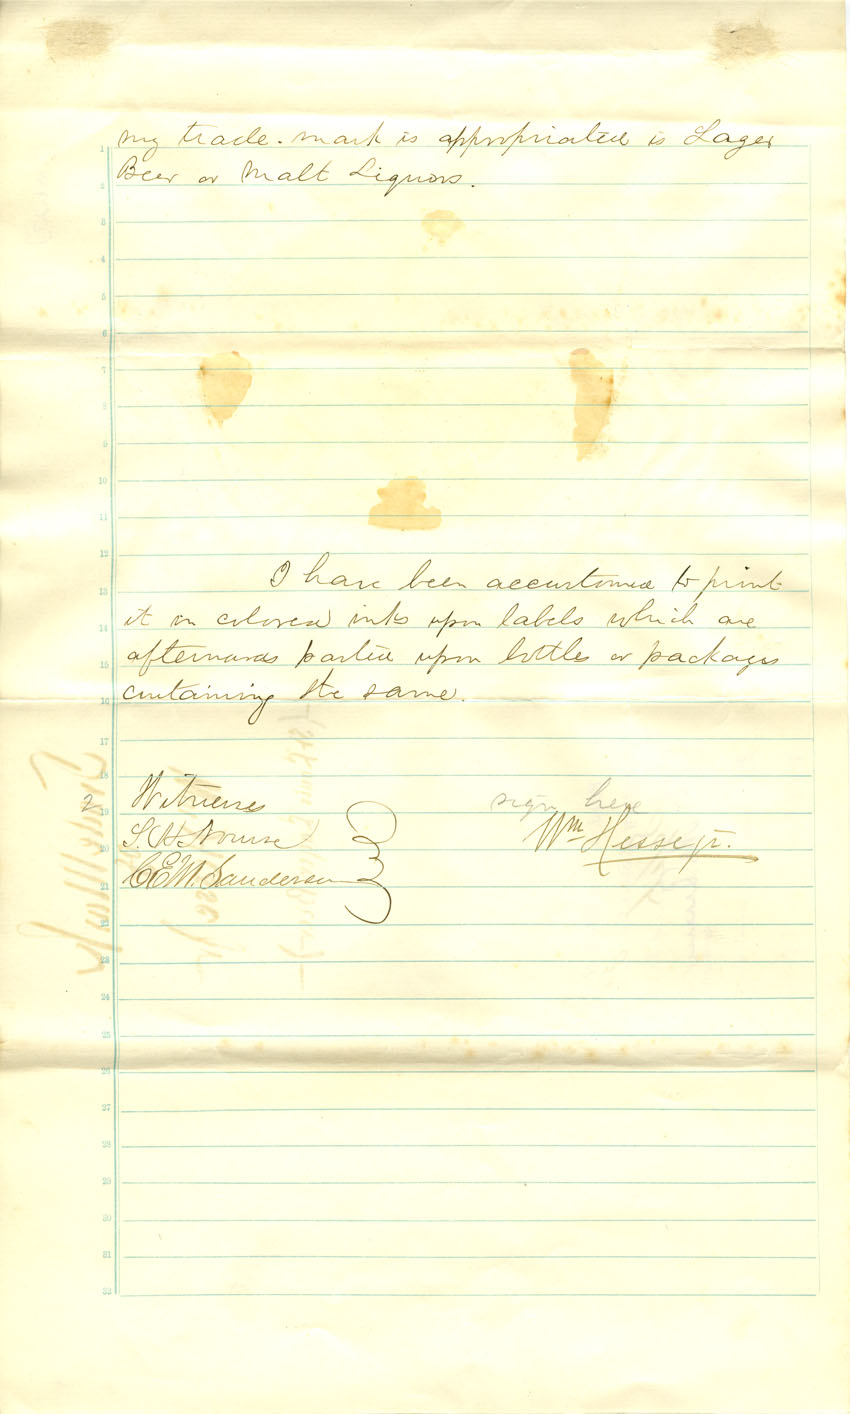 my trade-mark is appropriated is Lager
Beer or Malt Liquors.
I have been accustomed to print
it in colored inks upon labels which are
afterwards pasted upon bottles or packages
containing the same.
2 Witnesses
sign here
S. H. Nourse
Wm Hesse jr.
C E M. Sanderson
1
2
3
4
5
6
7
8
9
10
11
12
13
14
15
16
17
18
19
20
21
22
23
24
25
26
27
28
29
30
31
32